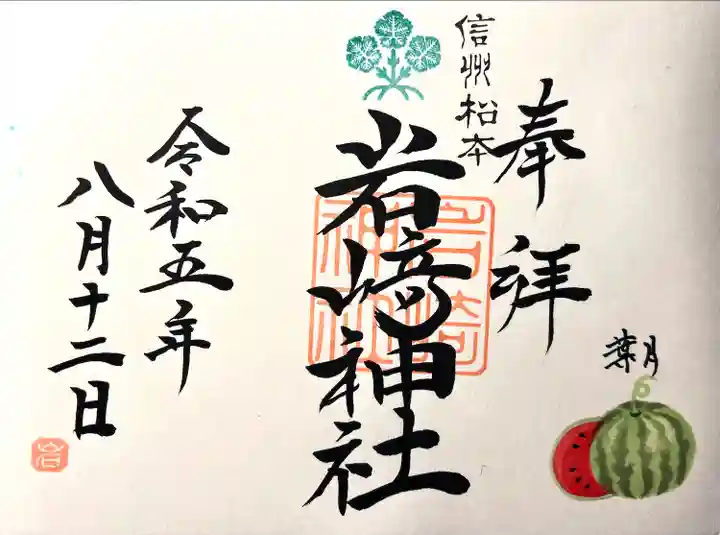 奉拝
信州松本
岩﨑神社
岩崎神社
令和五年
八月十二日
葉月
岩